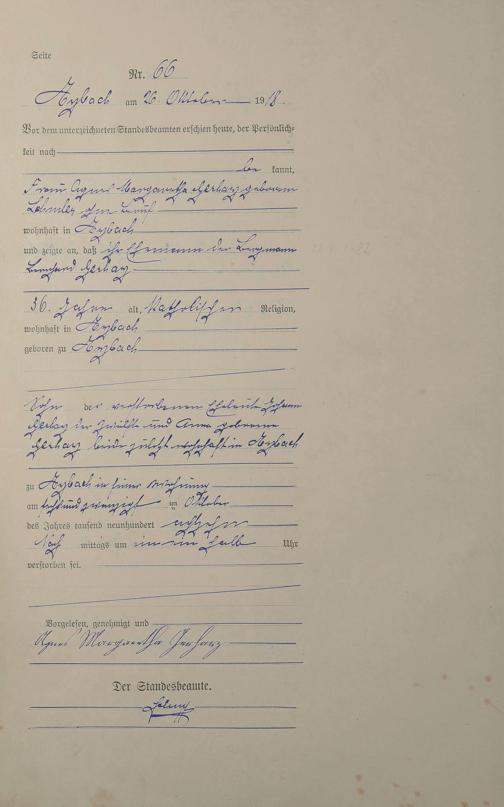 Seite
Nr. 66
Arzbach am 26. Oktober 1918.
Vor dem unterzeichneten Standesbeamten erschien heute, der Persönlich-
keit nach
be kannt,
Frau Agnes Margaretha Gerharz geborene
ohne Beruf
wohnhaft in Arzbach
und zeigte an, daß ihr Ehemann der Bergmann
Bernhard Gerharz
36. Jahre alt, Katholischer Religion,
wohnhaft in Arzbach
geboren zu Arzbach
Sohn der verstorbenen Eheleute Johann
Gerharz der Zweite und Anna geborene
Gerharz beide zuletzt wohnhaft in Arzbach
zu Arzbach in seiner Wohnung
am im Oktober
des Jahres tausend neunhundert achtzehn
Nach mittags um ein ein halb Uhr
verstorben sei.
Vorgelesen, genehmigt und
Agnes Margaretha Gerharz
Der Standesbeamte.